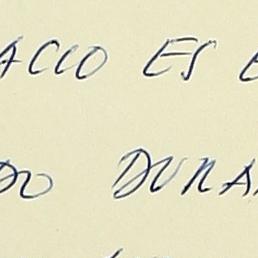 ACIO ES E
DO DURA